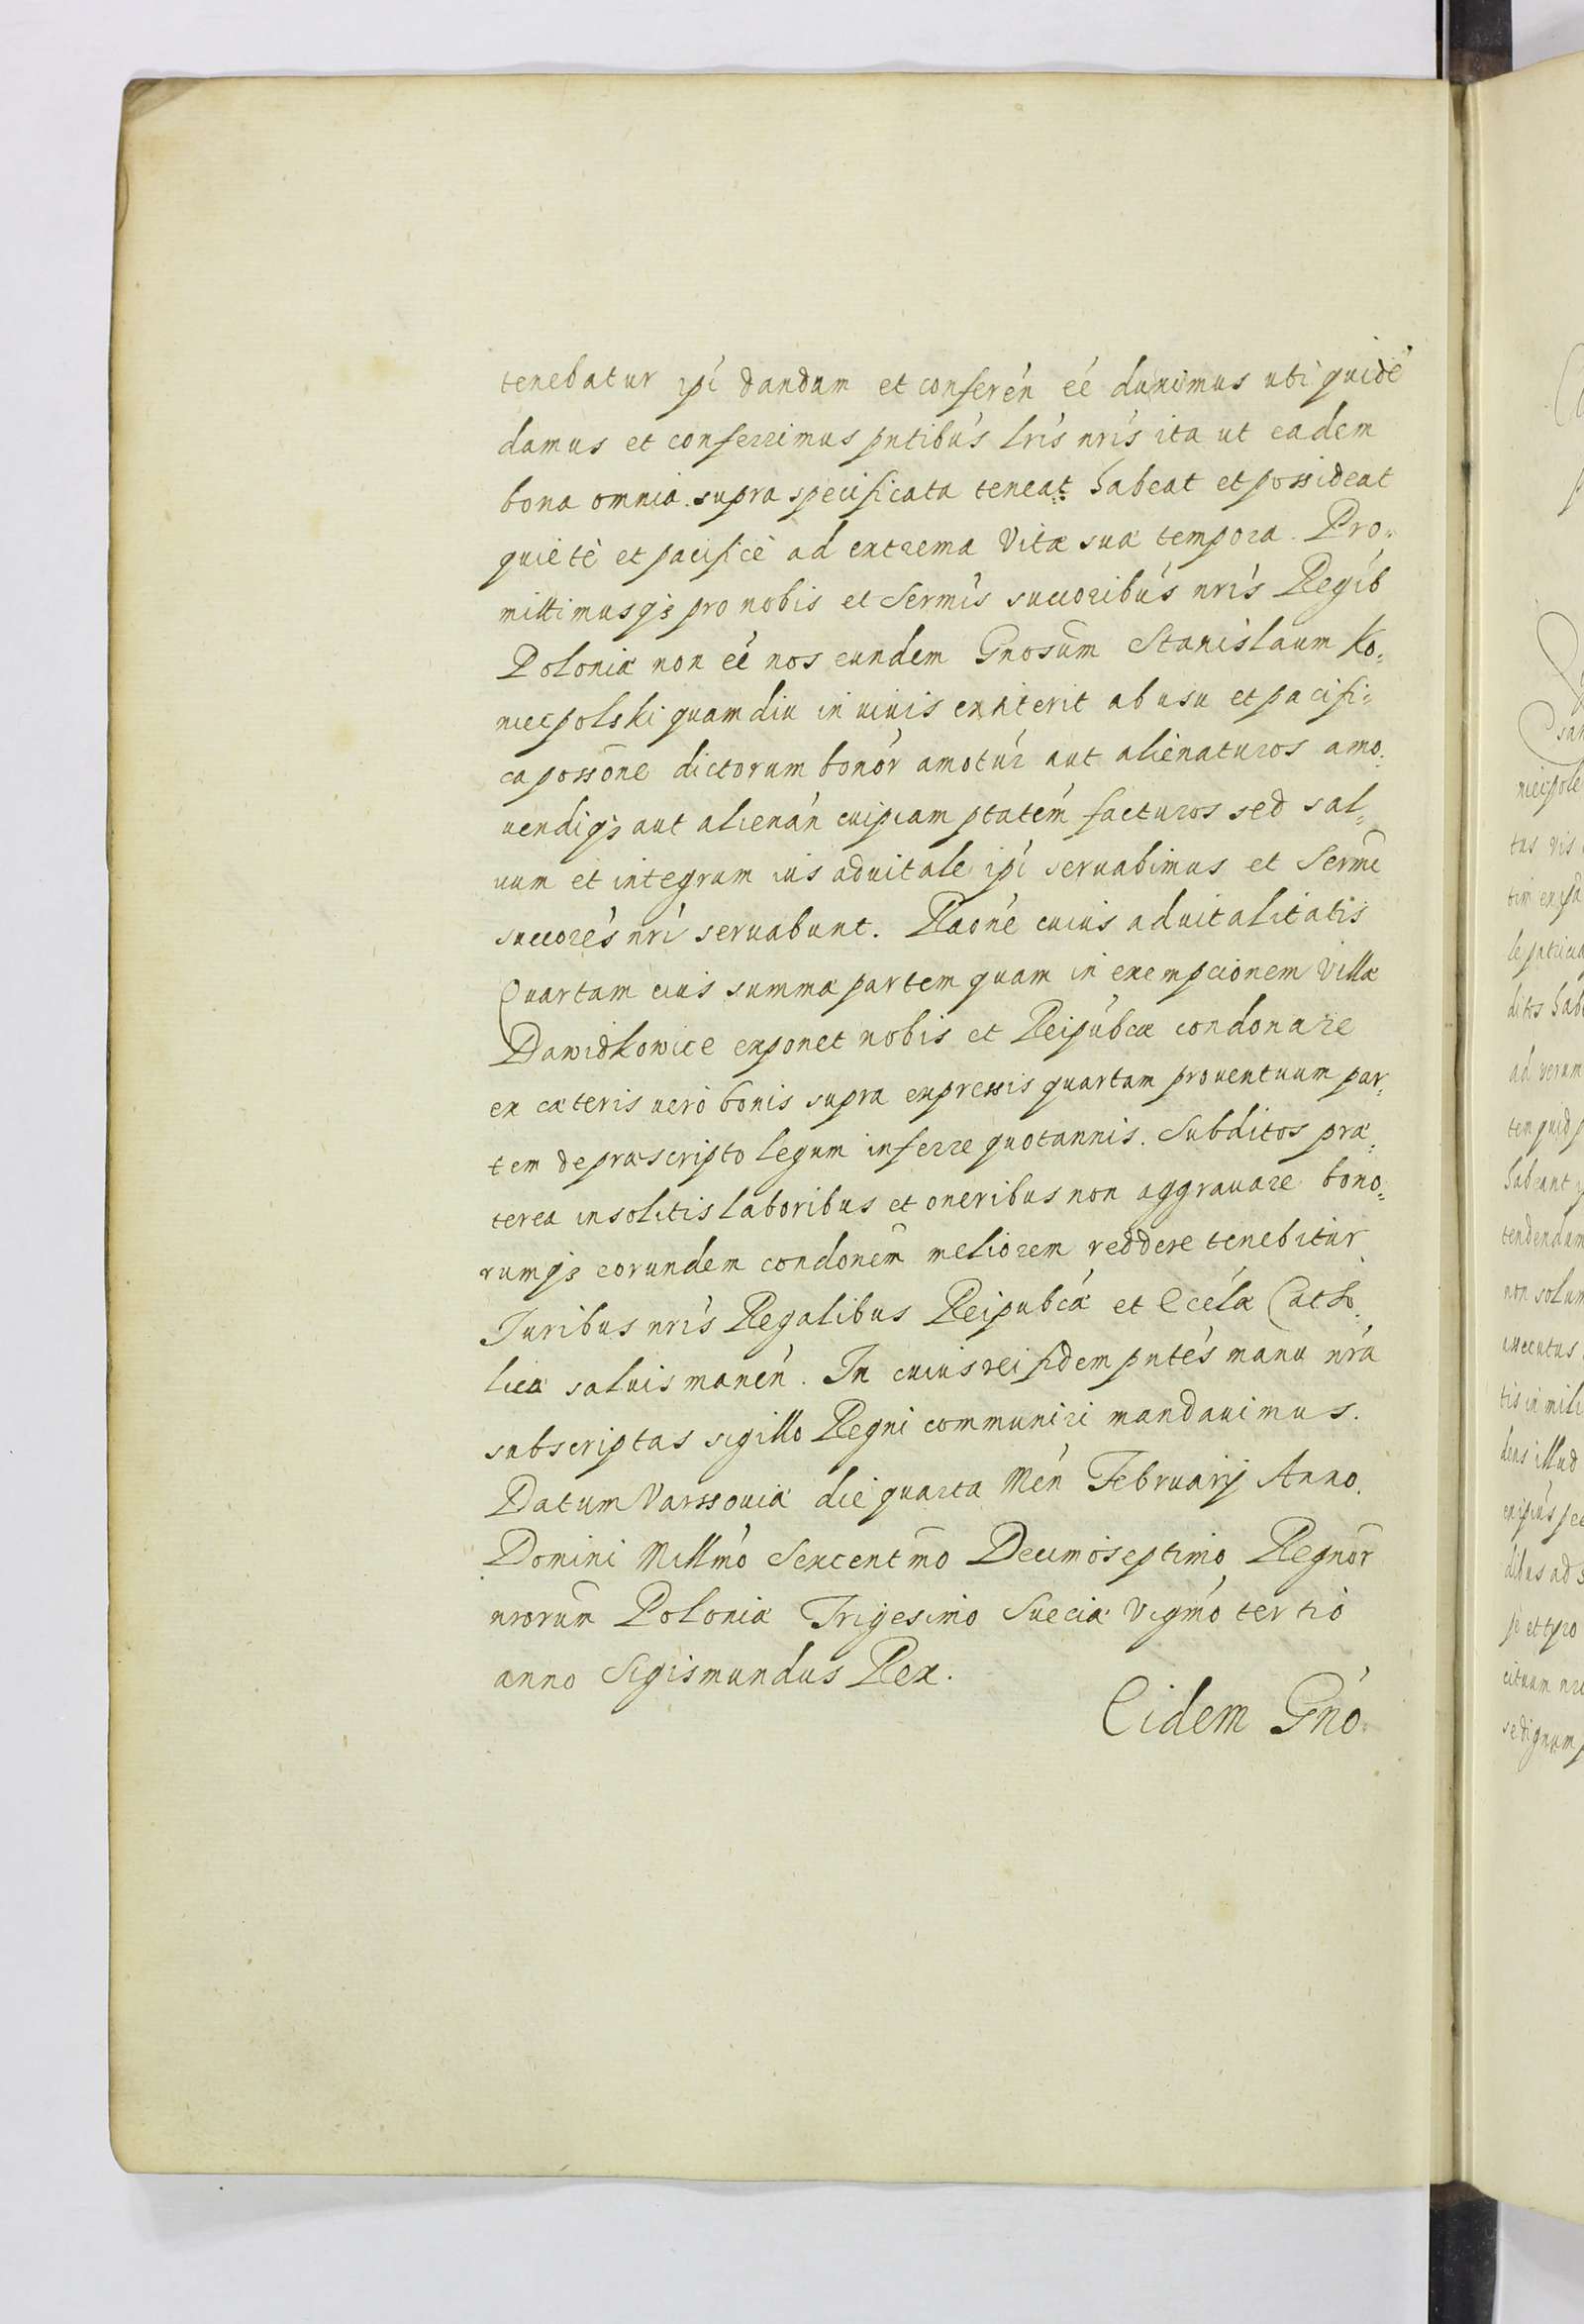 tenebatur ipi dandum et conferen eé duximus uti quidē
damus et conferrimus pntibus lris nris ita ut eadem
bona omnia supra specificata teneat habeat et possideat
quietè et pacificè ad extrema Vitæ suæ tempora. Pro=
mittimusqȝ pro nobis et Sermis succoribus nris Regib
Poloniæ non eé nos eundem Gnosum Stanislaum Ko=
niecpolski quamdiu in uiuis exstiterit ab usu et pacifi=
ca possone dictorum bonor amotur aut alienaturos amo=
uendiqȝ aut alienan cuipiam ptatem facturos sed sal=
uum et integrum ius aduitale ipi seruabimus et Sermi
succores nri seruabunt. Raone cuius aduitalitatis
Quartam eius summæ partem quam in exempcionem Villæ
Dawidkowice exponet nobis et Reipubcæ condonare
ex cæteris uerò bonis supra expressis quartam prouentuum par=
tem de præscripto legum inferre quotannis. Subditos præ=
terea insolitis laboribus et oneribus non aggrauare bono=
rumqȝ eorundem condonem meliorem reddere tenebitur
Juribus nris Regalibus Reipubcæ et Eccelæ Catho=
licæ saluis manen. In cuius rei fidem pntes manu nra
subscriptas sigillo Regni communiri mandauimus.
Datum Varssouiæ die quarta Men Februarij Anno
Domini Millmo Sexcentmo Decimoseptimo Regnor
nrorum Poloniæ Trigesimo Sueciæ Vigmo tertio
anno Sigismundus Rex.
Eidem Gno